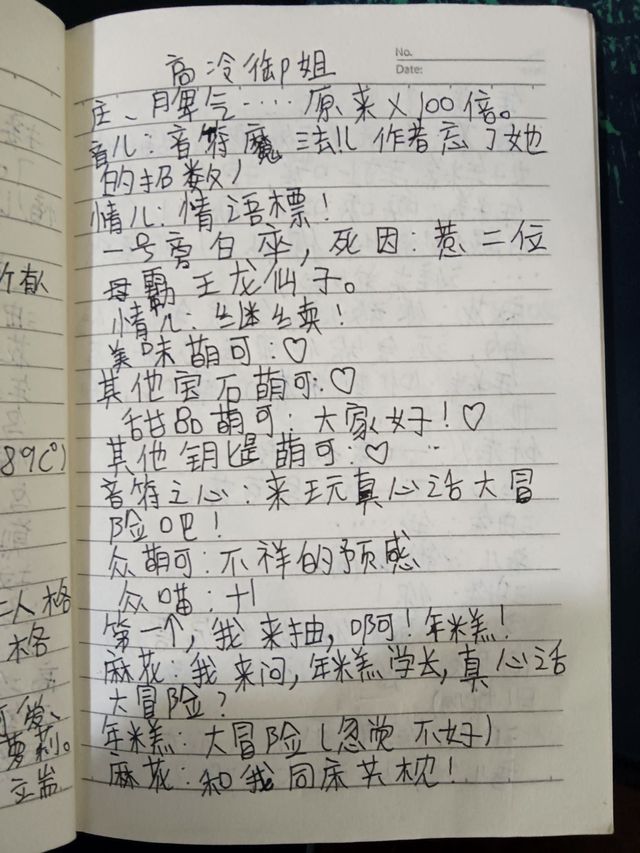 No.
Date:
高冷御姐
圧、脾气····原来×100倍。
音儿:音符魔法!(作者忘了她
的招数)
情儿:情语標!
一号旁白卒,死因:惹二位
母霸王龙仙子。
情儿:继续!
美味萌可:♡
其他宝石萌可:♡
甜品萌可:大家好!♡
其他钥匙萌可:♡
音符之心:来玩真心话大冒
险吧!
众萌可:不祥的预感
众喵:+1
第一个,我来抽,啊!年糕!
麻花:我来问,年糕学长,真心话
大冒险?
年糕:大冒险(忽觉不好)
麻花:和我同床共枕!
89C°)
二人格
格
萝莉。